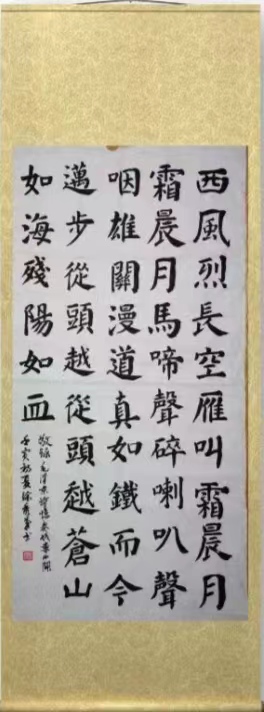 西風烈長空雁叫霜晨月
霜晨月馬啼聲碎喇叭聲
咽雄關漫道真如鐵而今
邁步從頭越從頭越蒼山
如海殘陽如血
敬錄毛澤東憶秦娥婁山關
壬寅初夏